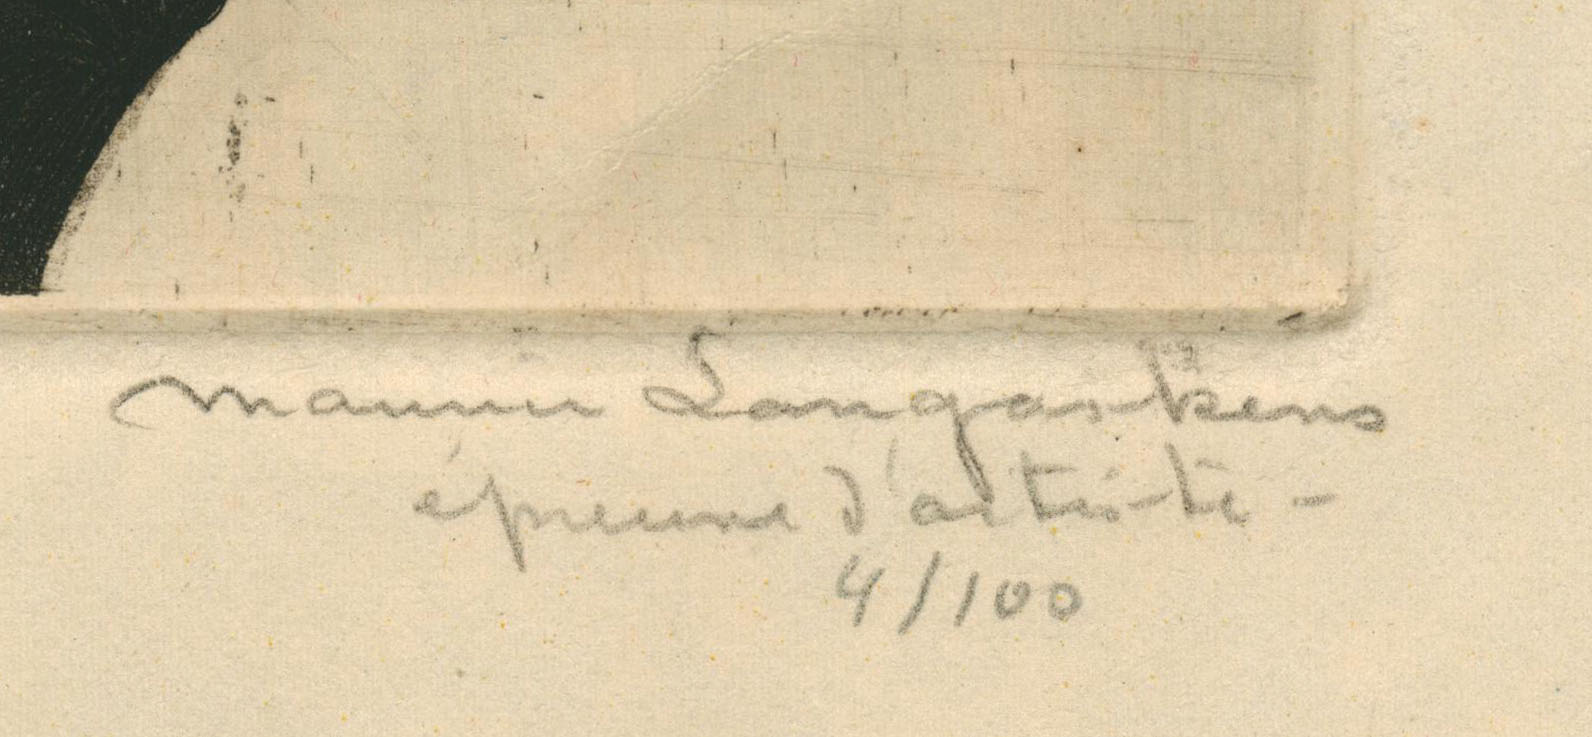 Maurice Langaskens
épreuve d'artiste -
4/100